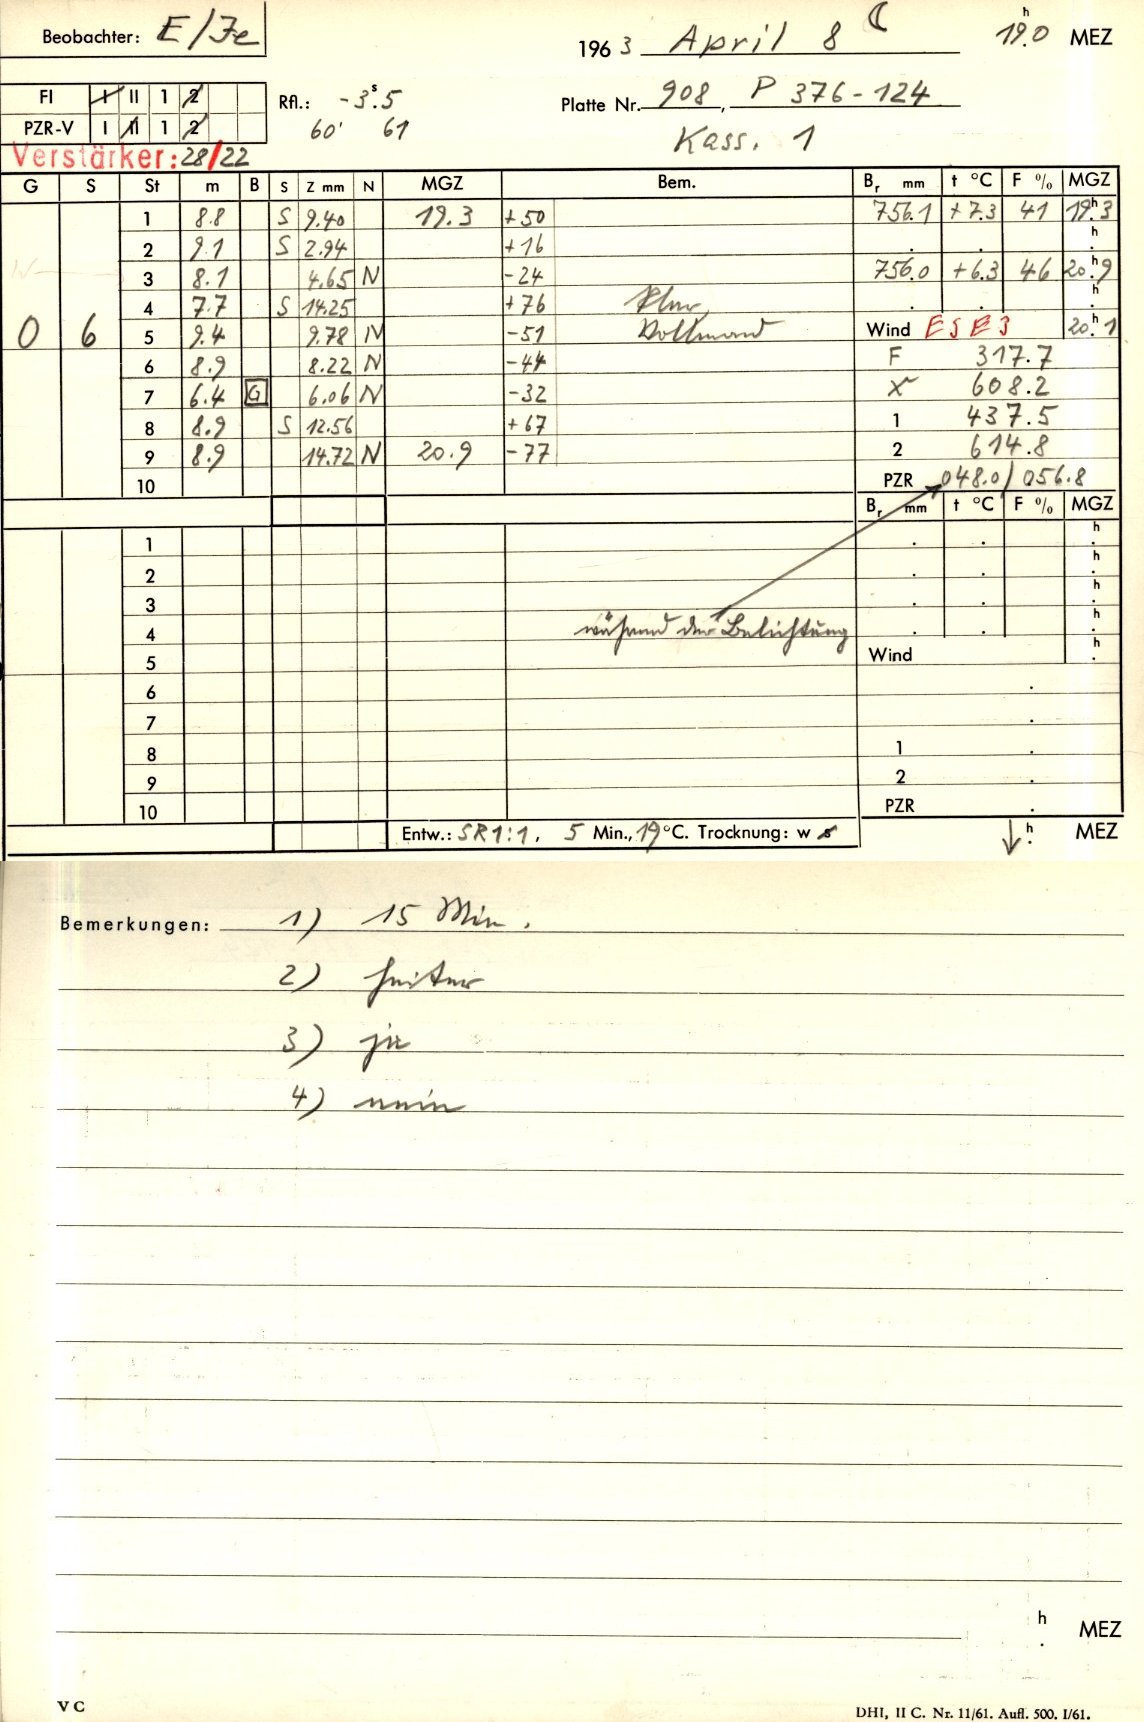 Beobachter: E/Je
196 3 April 8 ☾ 19ʰ.0 MEZ
FI I II 1 2
PZR-V I II 1 2
Rfl.: -3ˢ.5
60' 61
Platte Nr. 908, P 376-124
Kass. 1
Verstärker: 28/22
G S St m B S Z mm N MGZ Bem. Bᵣ mm t °C F % MGZ
1 8.8 S 9.40 19.3 +50 756.1 +7.3 41 19ʰ.3
2 9.1 S 2.94 +16 . . ʰ.
3 8.1 4.65 N -24 756.0 +6.3 46 20ʰ.9
4 7.7 S 14.25 +76 Klar . . ʰ.
0 6 5 9.4 9.78 N -51 Vollmond Wind ESE 3 20ʰ.1
6 8.9 8.22 N -44 F 317.7
7 6.4 G 6.06 N -32 X 608.2
8 8.9 S 12.56 +67 1 437.5
9 8.9 14.72 N 20.9 -77 2 614.8
10 PZR 048.0/056.8
Bᵣ mm t °C F % MGZ
1 . . ʰ.
2 . . ʰ.
3 . . ʰ.
4 während der Belichtung . . ʰ.
5 Wind ʰ.
6 .
7 .
8 1 .
9 2 .
10 PZR .
Entw.: SR1:1, 5 Min., 19°C. Trocknung: w s
↓ ʰ. MEZ
Bemerkungen: 1) 15 Min.
2) heiter
3) ja
4) nein
ʰ. MEZ
V C
DHI, II C. Nr. 11/61. Aufl. 500. I/61.